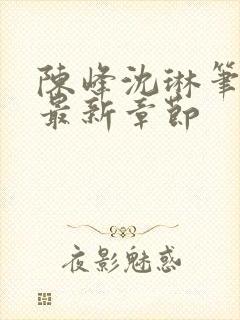 陳峰沈琳筆
最新章節
夜影魅惑